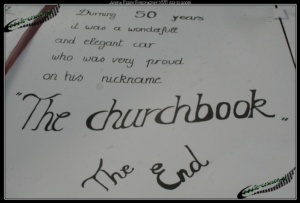 During 50 years
it was a wonderfull
and elegant car
who was very proud
on his nickname
"The churchbook"
The End